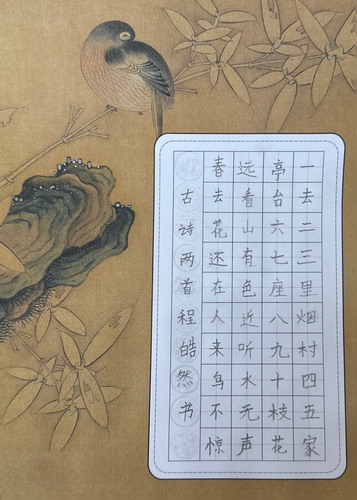 一去二三里烟村四五家
亭台六七座八九十枝花
远看山有色近听水无声
春去花还在人来鸟不惊
古诗两首程皓然书